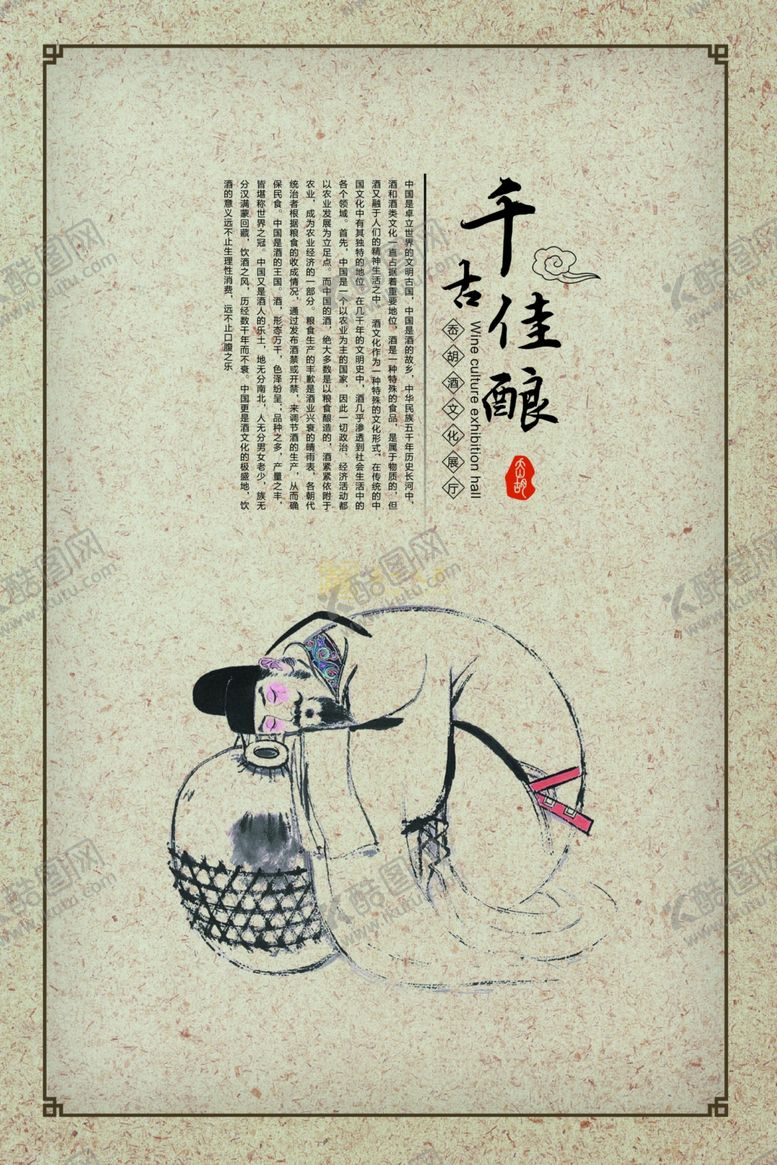 千古佳酿
Wine culture exhibition hall
岙胡酒文化展厅
岙胡
中国是卓立世界的文明古国,中国是酒的故乡,中华民族五千年历史长河中,
酒和酒类文化一直占据着重要地位,酒是一种特殊的食品,是属于物质的,但
酒又融于人们的精神生活之中。酒文化作为一种特殊的文化形式,在传统的中
国文化中有其独特的地位。在几千年的文明史中,酒几乎渗透到社会生活中的
各个领域。首先,中国是一个以农业为主的国家,因此一切政治、经济活动都
以农业发展为立足点。而中国的酒,绝大多数是以粮食酿造的,酒紧紧依附于
农业,成为农业经济的一部分。粮食生产的丰歉是酒业兴衰的晴雨表,各朝代
统治者根据粮食的收成情况,通过发布酒禁或开禁,来调节酒的生产,从而确
保民食。中国是酒的王国。酒,形态万千,色泽纷呈,品种之多,产量之丰,
皆堪称世界之冠。中国又是酒人的乐土,地无分南北,人无分男女老少,族无
分汉满蒙回藏,饮酒之风,历经数千年而不衰。中国更是酒文化的极盛地,饮
酒的意义远不止生理性消费,远不止口腹之乐
酷图网
www.ikutu.com